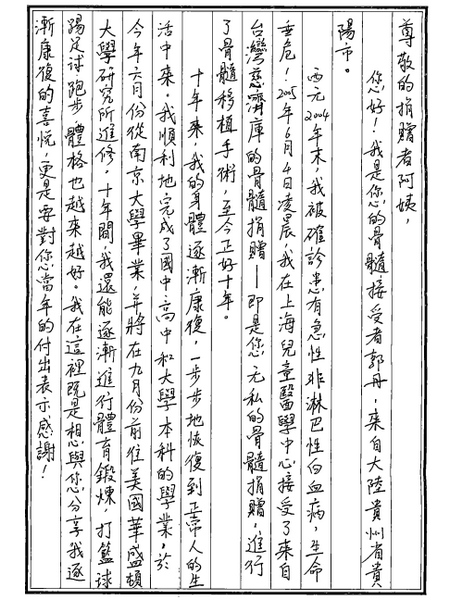 尊敬的捐贈者阿姨，
您好！我是您的骨髓接受者郭丹，來自大陸貴州省貴
陽市。
西元2004年末，我被確診患有急性非淋巴性白血病，生命
垂危！2005年6月4日凌晨，我在上海兒童醫學中心接受了來自
台灣慈濟庫的骨髓捐贈——即是您無私的骨髓捐贈，進行
了骨髓移植手術，至今正好十年。
十年來，我的身體逐漸康復，一步步地恢復到正常人的生
活中來。我順利地完成了國中、高中和大學本科的學業，於
今年六月份從南京大學畢業，并將在九月份前往美國華盛頓
大學研究所進修。十年間，我還能逐漸進行體育鍛煉，打籃球
踢足球、跑步，體格也越來越好。我在這裡既是想與您分享我逐
漸康復的喜悅，更是要對您當年的付出表示感謝！